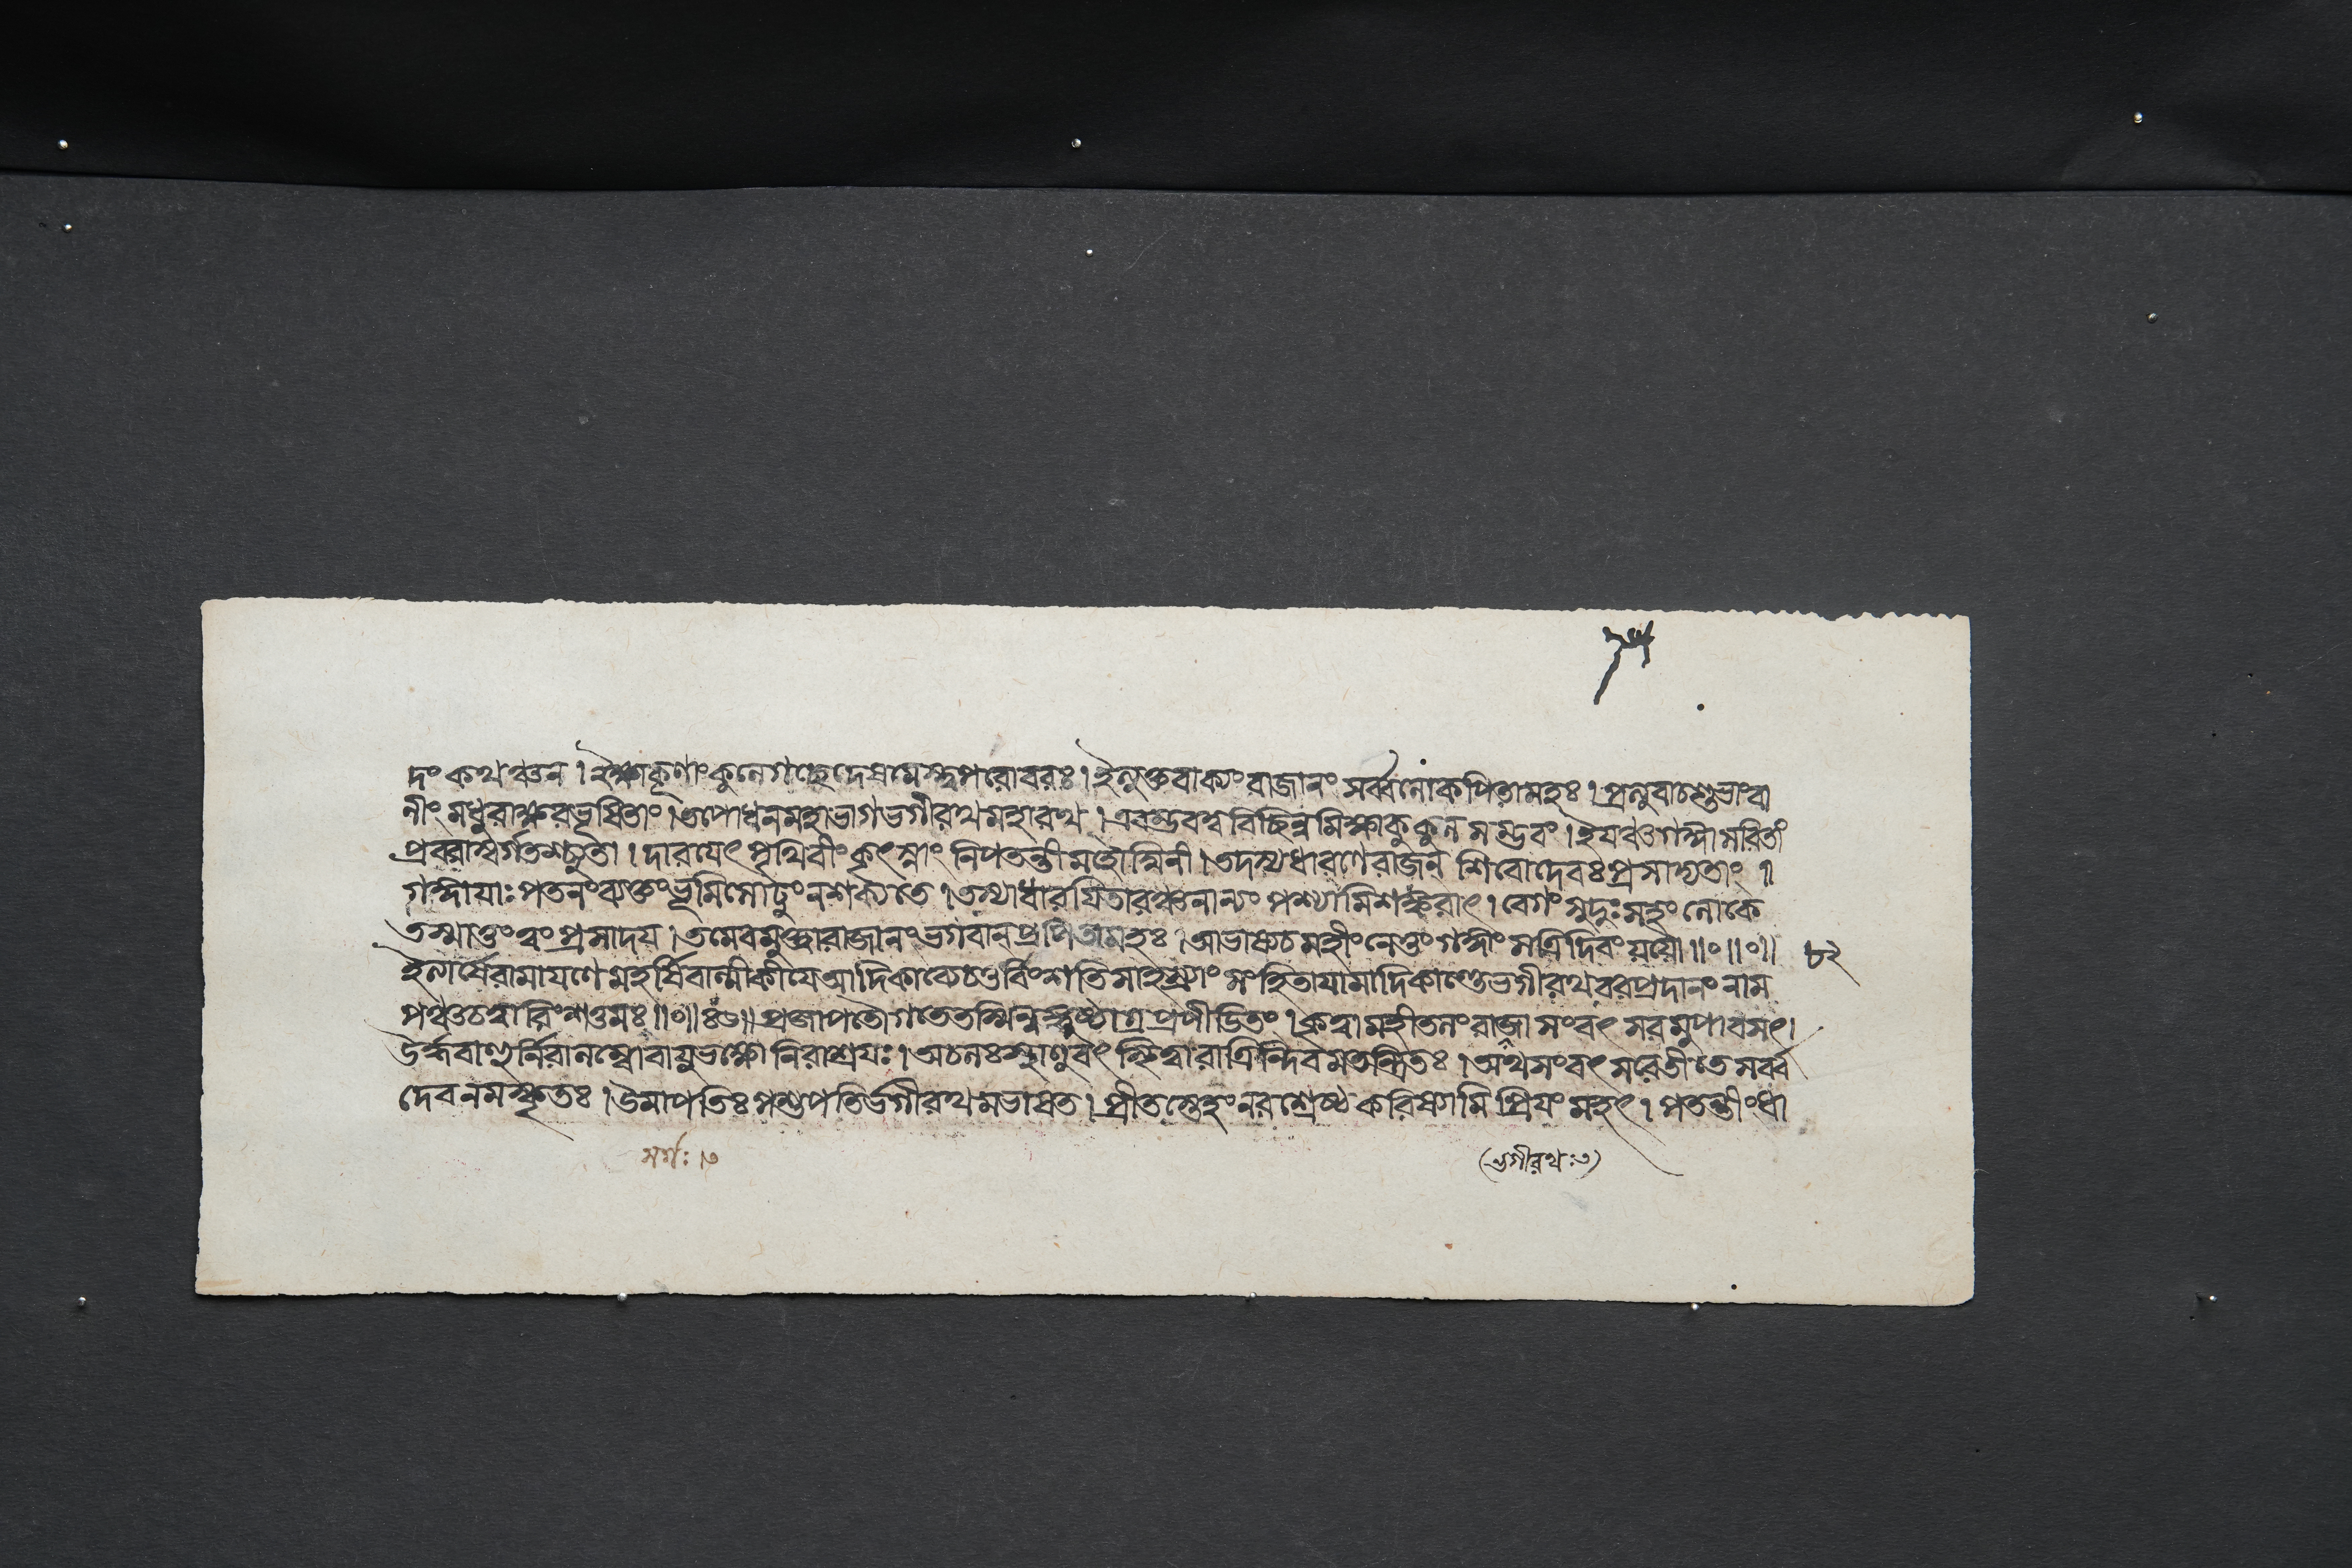 দং কথঞ্চন । ইক্ষ্বাকূণাং কুলেগচ্ছেদেষমেস্তু পরোবরঃ । ইত্যুক্তবাক্যং রাজানং সর্ব্বলোকপিতামহঃ । প্রত্যুবাচশুভাংবা
নীং মধুরাক্ষরভূষিতাং । তপোধনমহাভাগভগীরথমহারথ । এবম্ভবত্ববিচ্ছিন্নমিক্ষ্বাকুকুলসম্ভবং । ইযঞ্চগঙ্গাসরিতাং
প্রবরাস্বর্গতশ্চ্যুতা । দারযেৎ পৃথিবীং কৃৎস্নাং নিপতন্তীমহৌর্ম্মিনী । তদস্যধারণেরাজন্ শিবোদেবঃ প্রসাদ্যতাং ॥
গঙ্গাযাঃ পতনংব্যক্তংভূমিসোঢ়ুংনশক্যতে । তস্যাধারযিতারঞ্চনান্যং পশ্যামিশঙ্করাৎ । বেগং সুদুঃসহং লোকে
তস্মাত্তংত্বং প্রসাদয় । তমেবমুক্ত্বারাজানং ভগবান্প্রপিতামহঃ । আভাষ্যচমহীংনেতুং গঙ্গাং সত্রিদিবং য়যৌ ॥০॥০॥ ৮২
ইত্যার্ষেরামাযণে মহর্ষিবাল্মীকীযেআদিকাব্যেচতুর্বিংশতিসাহস্র্যাং সংহিতাযামাদিকাণ্ডেভগীরথবরপ্রদানং নাম
পঞ্চচত্বারিংশত্তমঃ ॥০॥ ৪৫॥ প্রজাপতৌগতেতস্মিন্নঙ্গুষ্ঠাগ্রপ্রপীডিতং । কৃত্বামহীতলংরাজা সংবৎ সরমুপাবসৎ ।
ঊর্দ্ধবাহুর্নিরালম্বোবায়ুভক্ষোনিরাশ্রযঃ । অচলঃস্থাণুবৎ স্থিত্বারাত্রিন্দিবমতন্দ্রিতঃ । অথসংবৎসরেতীতে সর্ব্ব
দেবনমস্কৃতঃ । উমাপতিঃ পশুপতির্ভগীরথমভাষত । প্রীতস্তেহং নরশ্রেষ্ঠ করিষ্যামি প্রিযং মহৎ । পতন্তীংধা
সর্গঃ । ৩
(ভগীরথঃ৩)